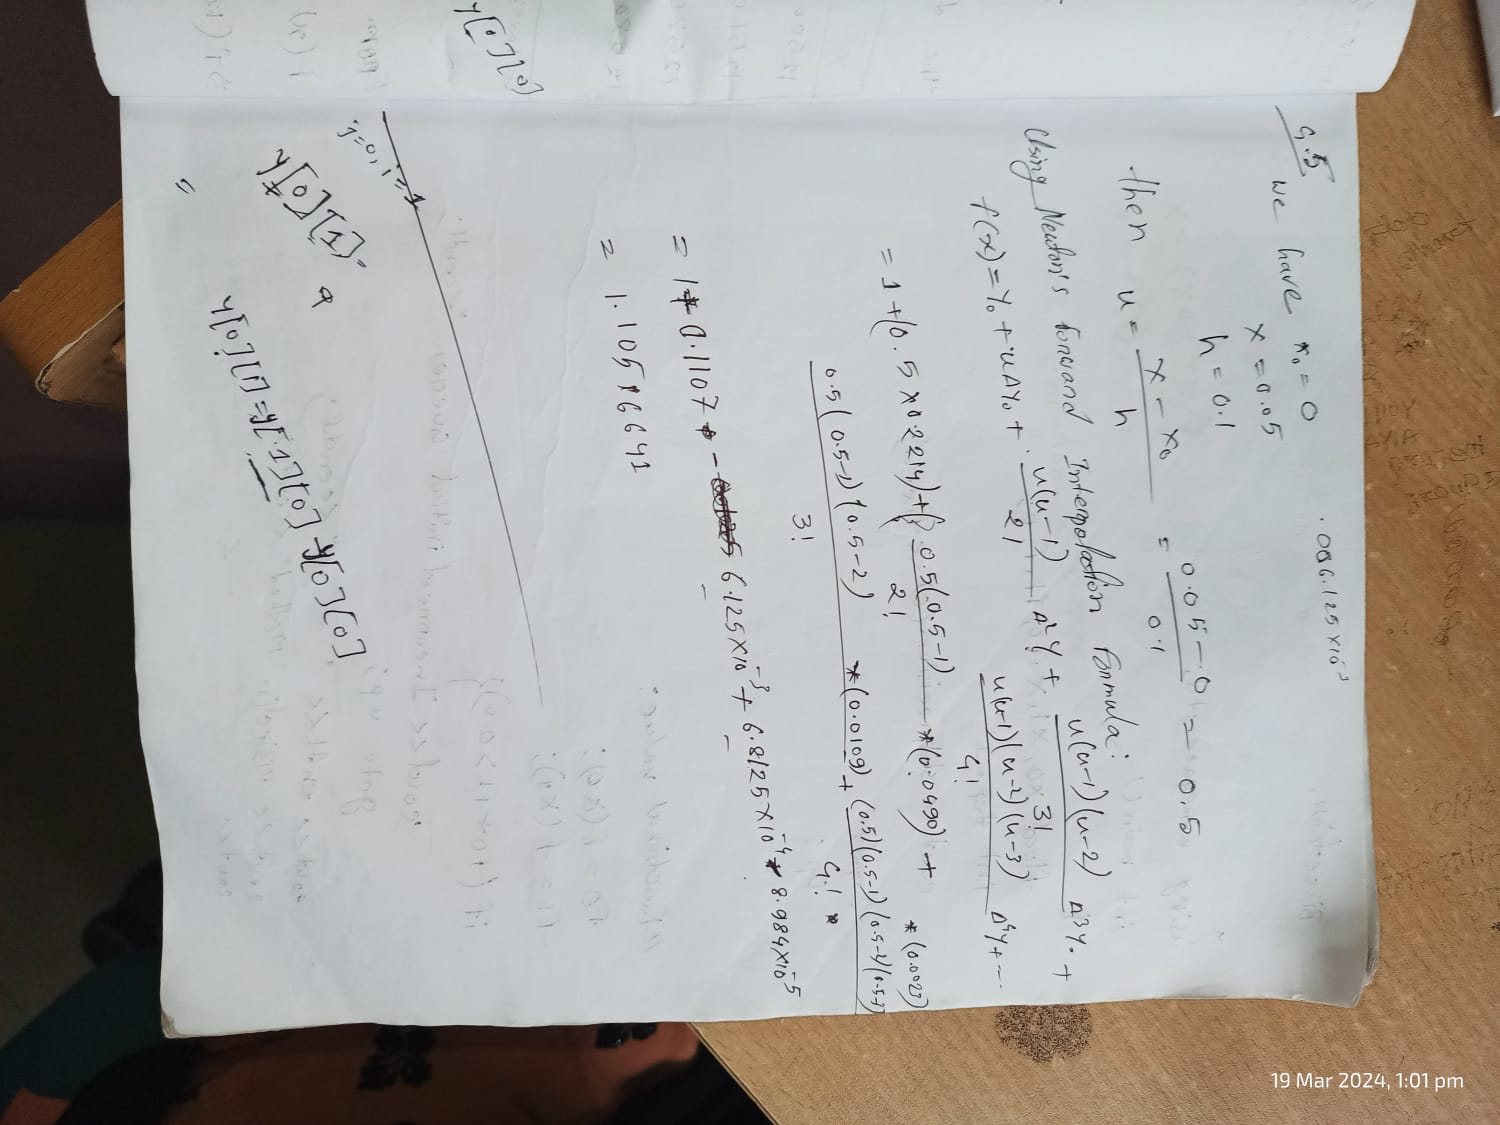 .006.125×10⁻³
G.5
We have x₀ = 0
x = 0.05
h = 0.1
then u = x - x₀ / h = 0.05 - 0 / 0.1 = 0.5
Using Newton's forward Interpolation formula:
f(x) = y₀ + uΔy₀ + u(u-1) / 2! Δ²y + u(u-1)(u-2) / 3! Δ³y₀ +
u(u-1)(u-2)(u-3) / 4! Δ⁴y + ---
= 1 + (0.5 × 0.2214) + { 0.5(0.5-1) / 2! * (0.0490) +
0.5(0.5-1)(0.5-2) / 3! * (0.0109) + (0.5)(0.5-1)(0.5-2)(0.5-3) / 4! * (0.0023)
= 1 + 0.1107 - 6.125×10⁻³ + 6.8125×10⁻⁴ + 8.984×10⁻⁵
= 1.10516641
j=0, i=1
y[0][1] =
y[0][1] = y[1][0] - y[0][0]
=
y[0][0]
19 Mar 2024, 1:01 pm